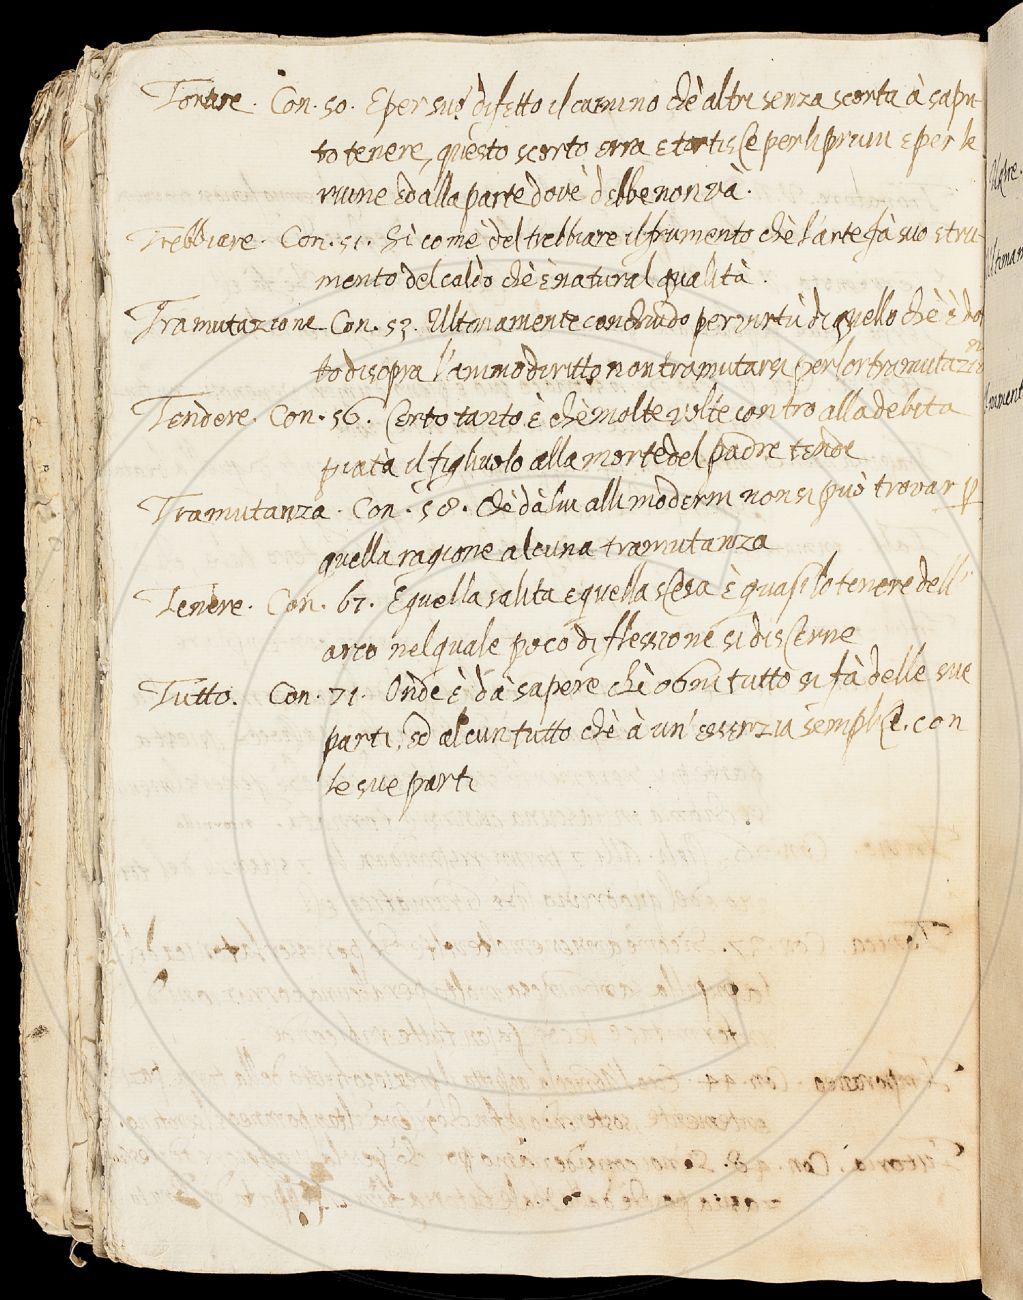 Tortire. Con. 50. E per suo difetto il camino chè altri senza scorta à sapu-
to tenere, questo scorto erra e tortisce per li pruni e per le
ruine ed alla parte dovè debbe non và.
Trebbiare. Con. 51. Sì comè del trebbiare il frumento chè l'arte fà suo stru-
mento del caldo chè è natural qualità.
Tramutazione Con. 53. Ultimamente conchiudo per virtù di quello chè è det
to di sopra l'animo diritto non tramutarsi per lor tramutazio
ni
Tendere. Con. 56. Certo tanto è chè molte volte contro alla debita
pietà il figliuolo alla morte del padre tende
Tramutanza. Con. 58. Chè dà lui alli moderni non si può trovar p
quella ragione alcuna tramutanza
Tenere. Con. 67. E quella salita e quella scesa è quasi lo tenere dell'
arco nel quale poco di flessione si discerne
Tutto. Con. 71. Onde è dà sapere chè ogni tutto si fà delle sue
parti, ed alcun tutto chè à un' essenzia semplice con
le sue parti